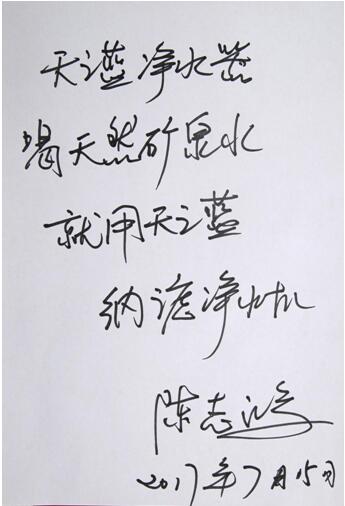 天之蓝净水器
喝天然矿泉水
就用天之蓝
纳滤净水机
陈志鸿
2017年7月15日